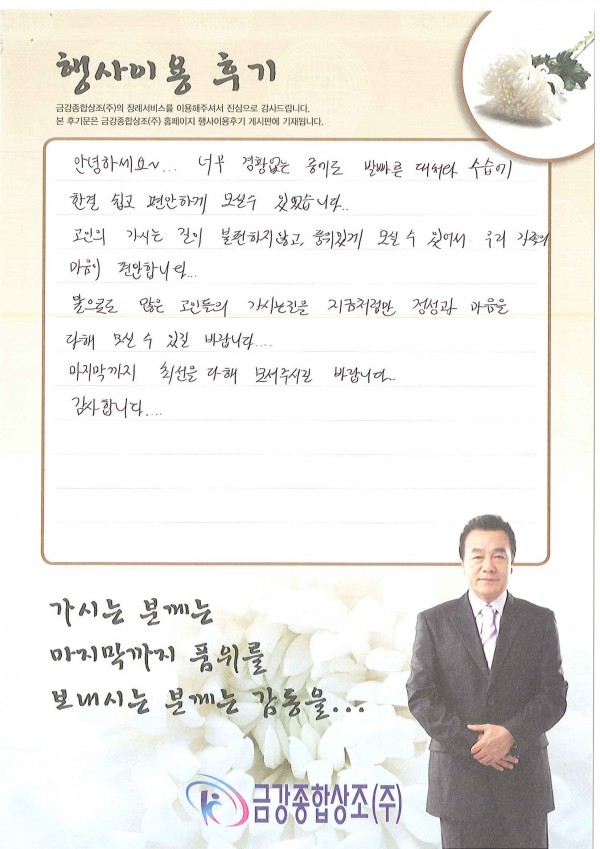 행사이용 후기
금강종합상조(주)의 장례서비스를 이용해주셔서 진심으로 감사드립니다.
본 후기문은 금강종합상조(주) 홈페이지 행사이용후기 게시판에 기재됩니다.
안녕하세요~... 너무 경황없는 중에도 발빠른 대처와 수습이
한결 쉽고 편안하게 모실수 있었습니다..
고인의 가시는 길이 불편하지않고, 품위있게 모실 수 있어서 우리 가족의
마음이 편안합니다...
앞으로도 많은 고인들의 가시는길을 지금처럼만 정성과 마음을
다해 모실 수 있길 바랍니다....
마지막까지 최선을 다해 모셔주시길 바랍니다..
감사합니다....
가시는 분께는
마지막까지 품위를
보내시는 분께는 감동을...
금강종합상조(주)